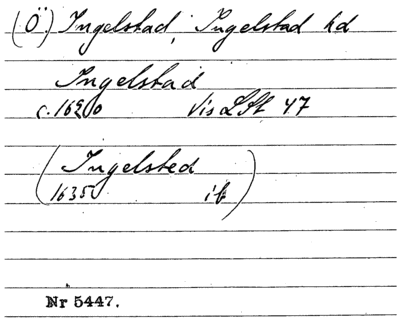 (Ö.) Ingelstad, Ingelstad hd
Ingelstad
c. 1620 Vis LSt 47
(Ingelsted
1635 ib)
Nr 5447.